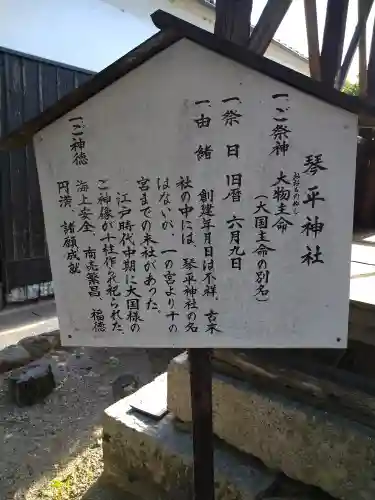 琴平神社
一、ご祭神 大物主命
おおものぬし
(大国主命の別名)
一、祭日 旧暦 六月九日
一、由緒 創建年月日は不祥、古来
社の中には、琴平神社の名
はないが、一の宮より千の
宮までの末社があった。
江戸時代中期に大国様の
ご神像が千柱作られ祀られた。
一、ご神徳
海上安全、商売繁昌、福徳
円満 諸願成就